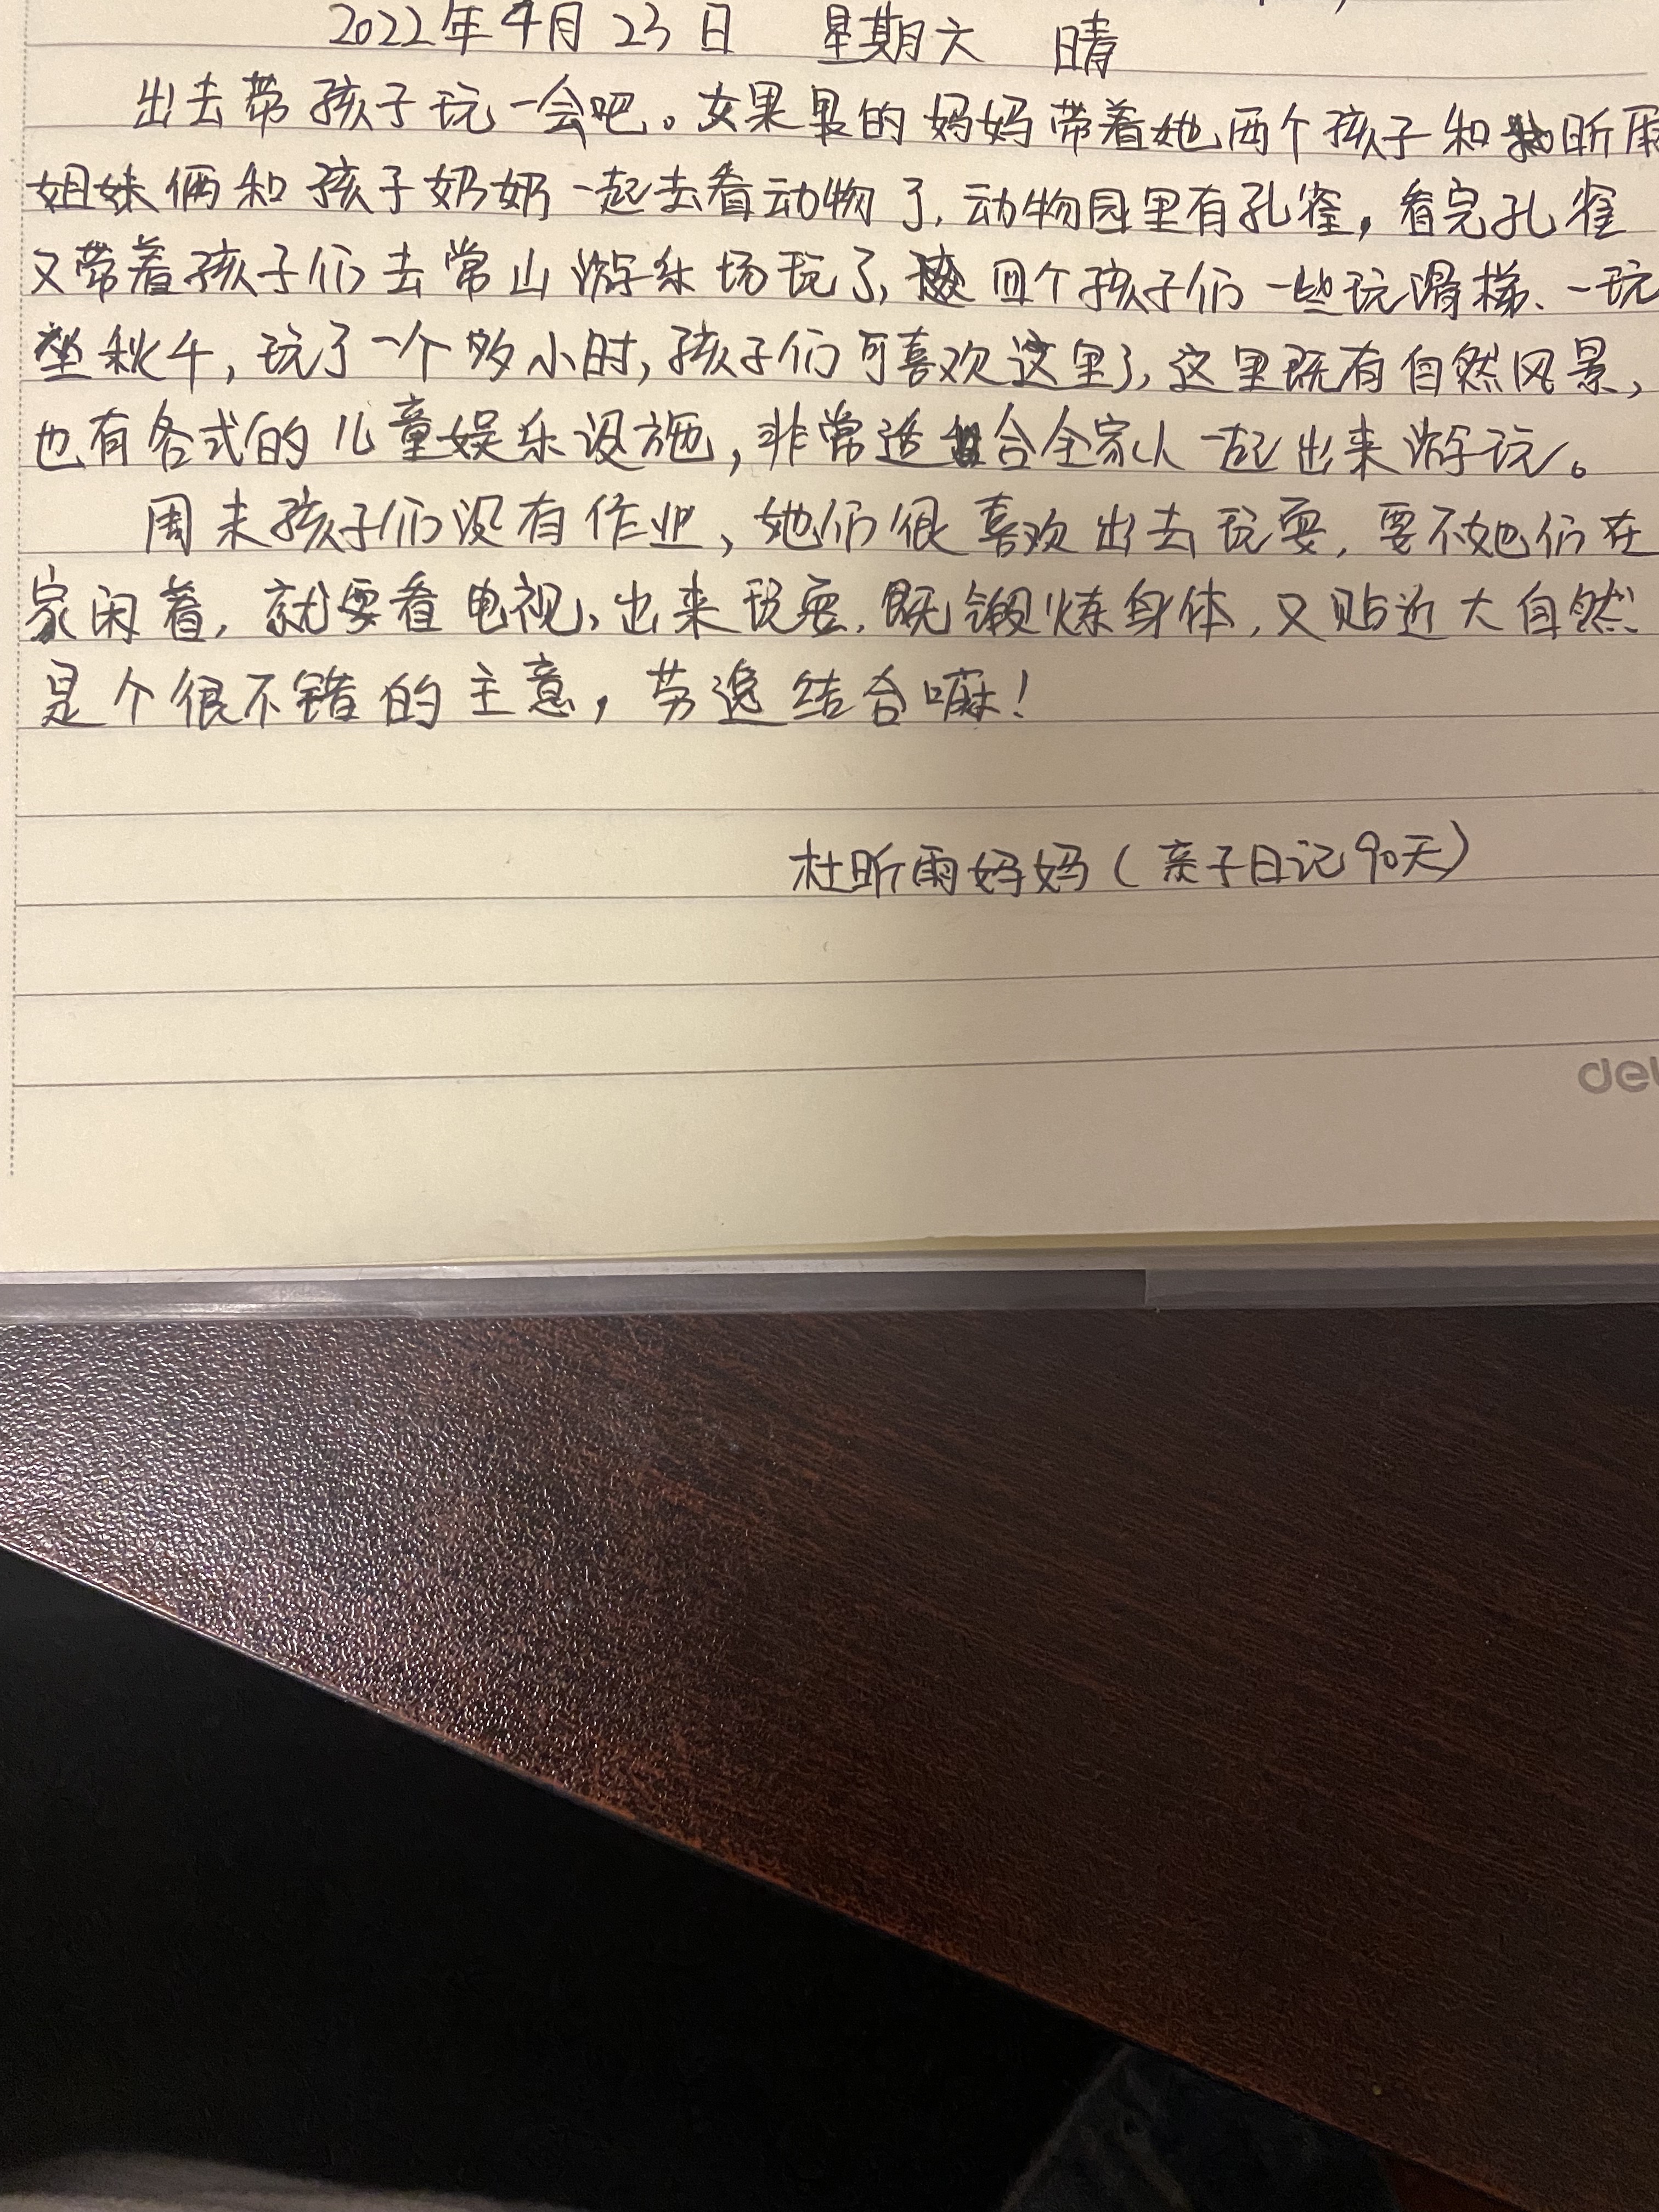 2022年4月23日 星期六 晴
出去带孩子玩一会吧。女果果的妈妈带着她两个孩子和昕雨
姐妹俩和孩子奶奶一起去看动物了,动物园里有孔雀,看完孔雀
又带着孩子们去常山游乐场玩了,四个孩子们一些玩滑梯、一玩
坐秋千,玩了一个多小时,孩子们可喜欢这里了,这里既有自然风景,
也有各式的儿童娱乐设施,非常适合全家人一起出来游玩。
周末孩子们没有作业,她们很喜欢出去玩耍,要不她们在
家闲着,就要看电视,出来玩耍,既锻炼身体,又贴近大自然
是个很不错的主意,劳逸结合嘛!
杜昕雨妈妈(亲子日记90天)